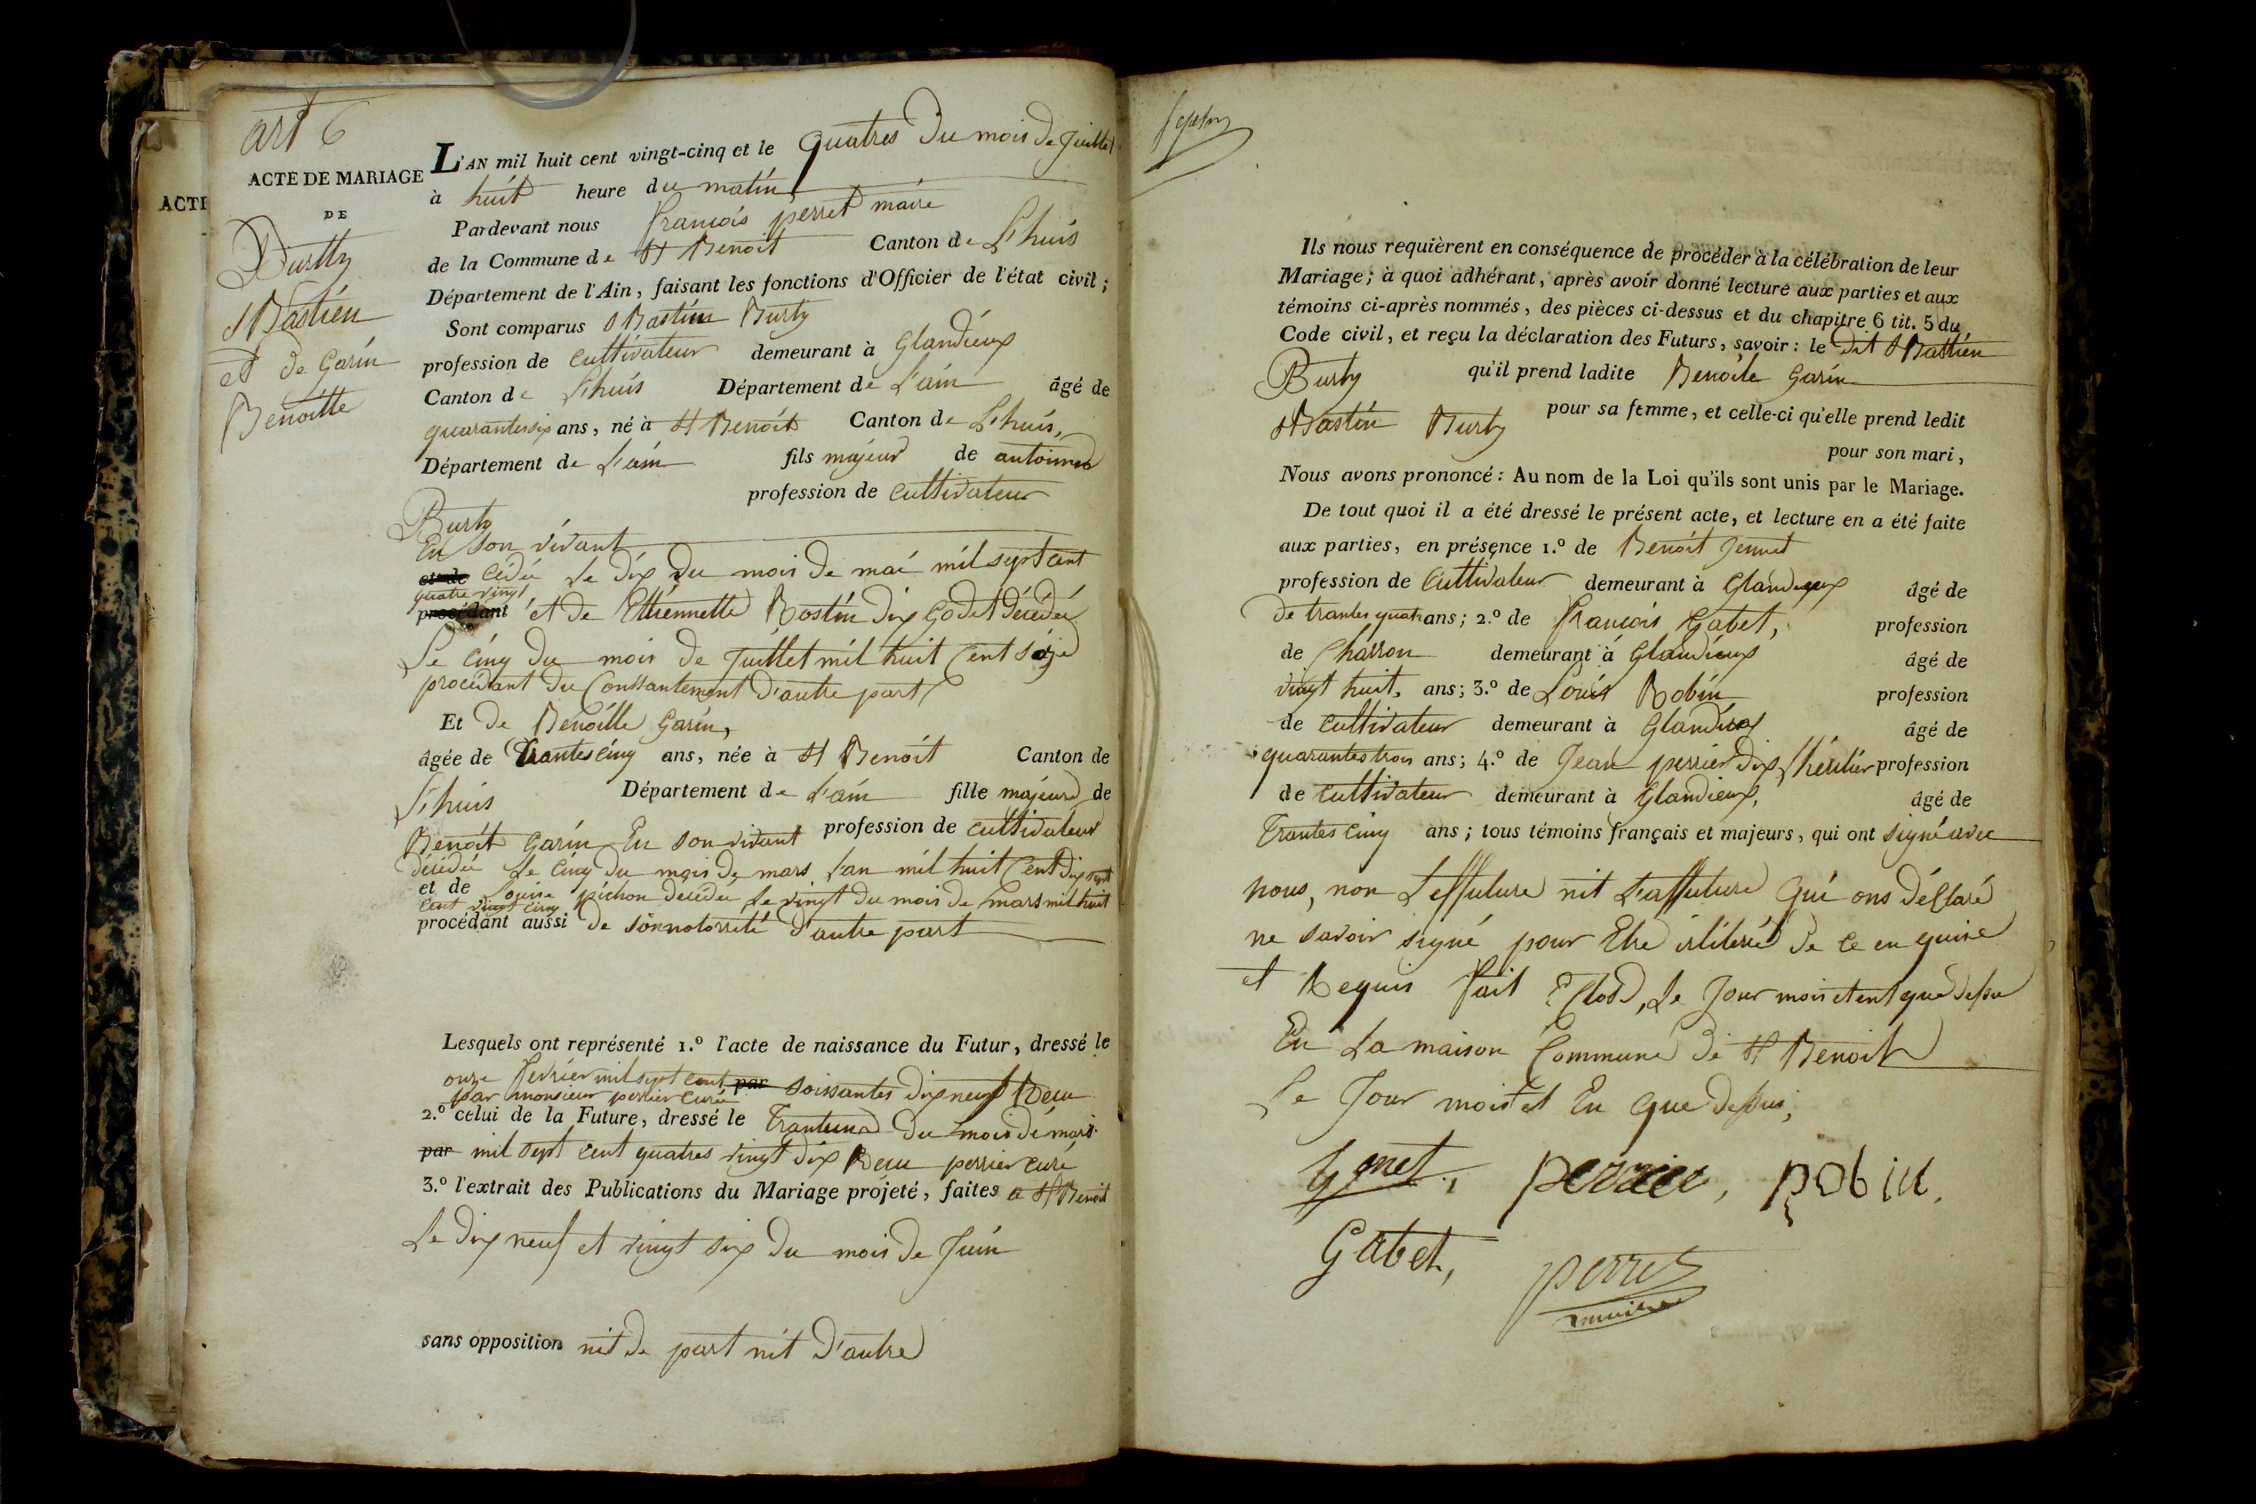 art 6
ACTE DE MARIAGE
DE
Burtty
sBastien
et de Garin
Benoitte
ACTE
L'AN mil huit cent vingt-cinq et le quatres du mois de Juillet
à huit heure du matin
Pardevant nous francois perret maire
de la Commune de St Benoit Canton de L'huis
Département de l'Ain, faisant les fonctions d'Officier de l'état civil;
Sont comparus sBastien Burty
profession de cultivateur demeurant à Glandieux
Canton de L'huis Département de L'ain âgé de
quarantesix ans, né à St Benoit Canton de L'huis,
Département de L'ain fils majeur de antoinne
Burty profession de cultivateur
En son vivant
et de cédée Le dix du mois de mai mil sept cent
quatre vingt
procédant et de Ettiennette Bostin dix Godet décédée
Le cinq du mois de Juillet mil huit Cent séze
procédant du Conssantement d'autre part
Et de Benoitte Garin,
âgée de Trantes cinq ans, née à St Benoit Canton de
L'huis Département de L'ain fille majeure de
Benoit Garin En son vivant profession de cultivateur
décédée Le cinq du mois de mars L'an mil huit Cent dix sept
et de Louise pichon décédée Le vingt du mois de mars mil huit
Cent vingt cinq
procédant aussi de sonnotorrité d'autre part
Lesquels ont représenté 1.º l'acte de naissance du Futur, dressé le
onze fevrier mil sept cent par soissantes dix neuf Recu
par monsieur perrier curée
2.º celui de la Future, dressé le Tranteune du mois de mars
par mil sept cent quatres vingt dix Recu perrier curé
3.º l'extrait des Publications du Mariage projeté, faites a St Benoit
Le dix neuf et vingt six du mois de Juin
sans opposition nit de part nit d'autre
Ils nous requièrent en conséquence de procéder à la célébration de leur
Mariage; à quoi adhérant, après avoir donné lecture aux parties et aux
témoins ci-après nommés, des pièces ci-dessus et du chapitre 6 tit. 5 du
Code civil, et reçu la déclaration des Futurs, savoir: le dit sBastien
Burty qu'il prend ladite Benoite Garin
pour sa femme, et celle-ci qu'elle prend ledit
sBastin Burty pour son mari,
Nous avons prononcé: Au nom de la Loi qu'ils sont unis par le Mariage.
De tout quoi il a été dressé le présent acte, et lecture en a été faite
aux parties, en présence 1.º de Benoit
profession de Cultivateur demeurant à Glandieux âgé de
de trantes quatr ans; 2.º de francois Gabet, profession
de Charron demeurant à Glandieux âgé de
vingt huit, ans; 3.º de Louis Robin profession
de cultivateur demeurant à Glandieux âgé de
quarantestrois ans; 4.º de Jean perrier dix profession
de cultivateur demeurant à Glandieux, âgé de
Trantes Cinq ans; tous témoins français et majeurs, qui ont signé avec
nous, non Leffuture nit Laffuture qui ons déclaré
ne savoir signé pour Etre de ce en quire
et Requis fait Clos, Le Jour mois et ent que dessu
En La maison Commune de St Benoit
Le Jour mois et En que dessus,
perrier, Robin.
Gabet,
perret
maire